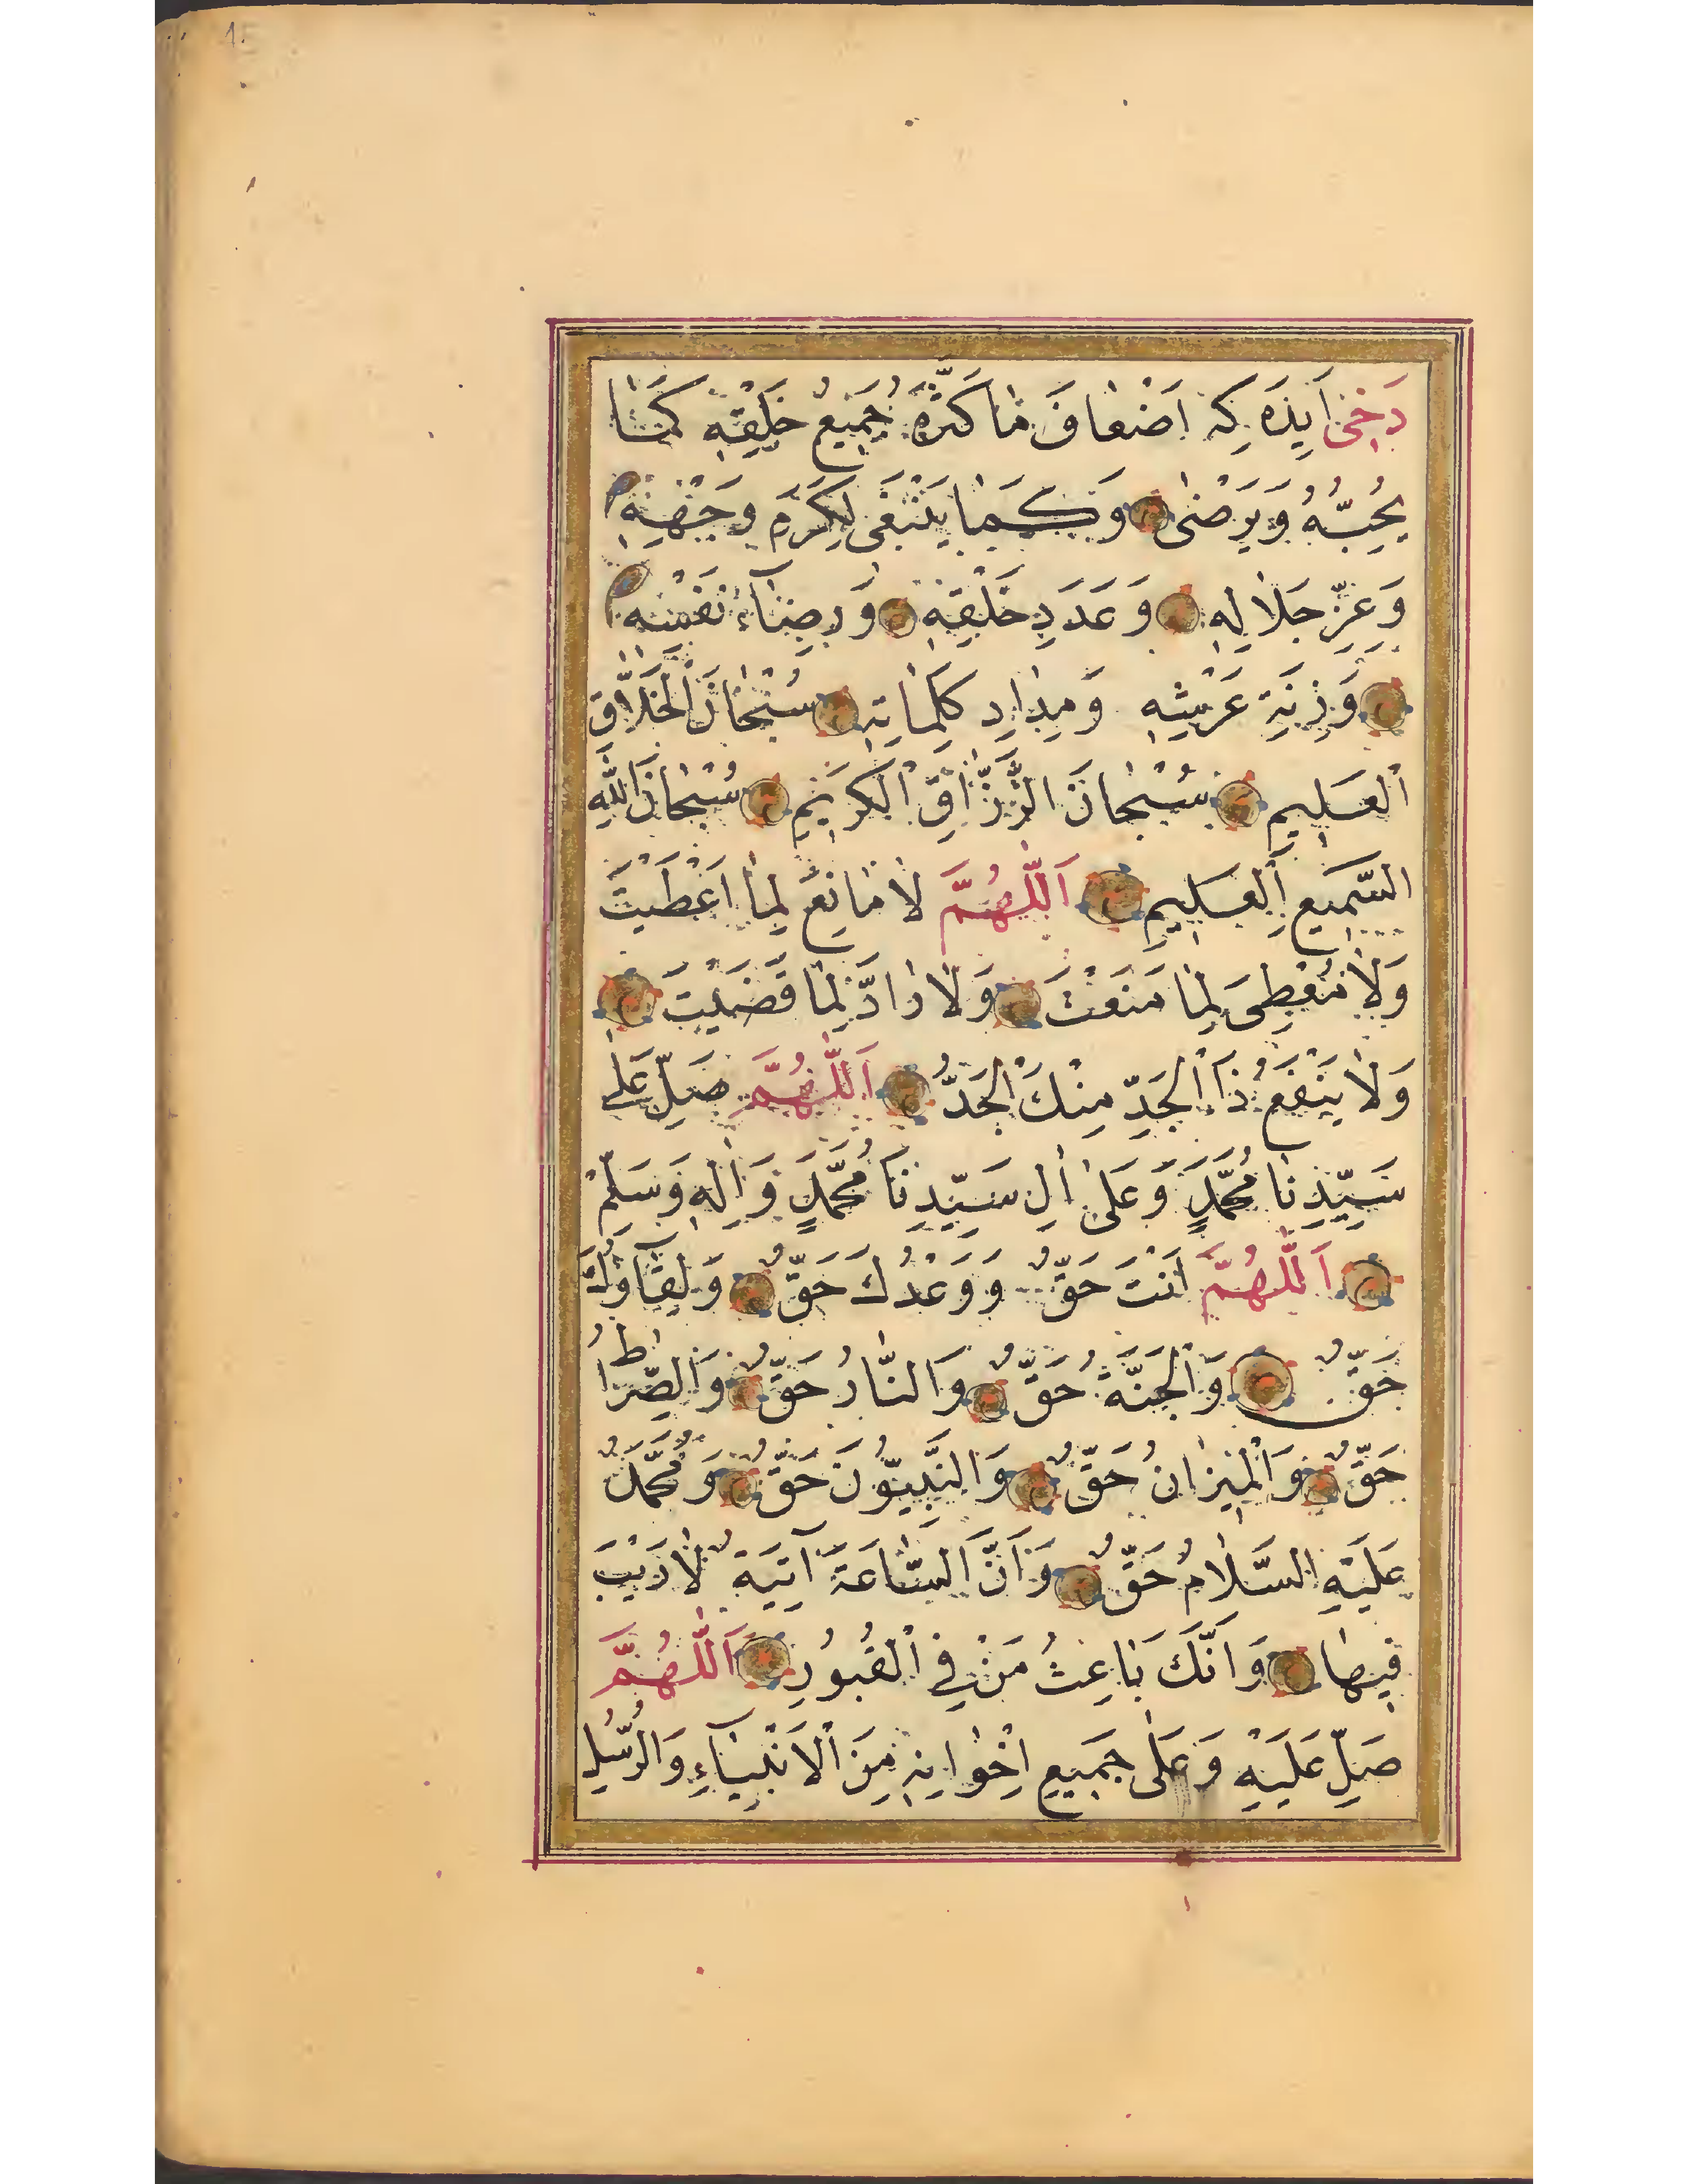 دَخِى اَيِدَه يِكِه اَضْعَافَ مَا كَبَّرَهُ جَمِيعُ خَلْقِهِ كَمَا
يُحِبُّهُ وَيَرْضٰى وَكَمَا يَنْبَغِى لِكَرَمِ وَجْهِهِ
وَعِزِّ جَلَالِهِ وَعَدَدِ خَلْقِهِ وَرِضَآءِ نَفْسِهِ
وَزِنَةِ عَرْشِهِ وَمِدَادِ كَلِمَاتِهِ سُبْحَانَ الْخَلَّاقِ
الْعَلِيمِ سُبْحَانَ الرَّزَّاقِ الْكَرِيمِ سُبْحَانَ اللّٰهِ
السَّمِيعِ الْعَلِيمِ اَللّٰهُمَّ لَا مَانِعَ لِمَا اَعْطَيْتَ
وَلَا مُعْطِىَ لِمَا مَنَعْتَ وَلَا رَادَّ لِمَا قَضَيْتَ
وَلَا يَنْفَعُ ذَا الْجَدِّ مِنْكَ الْجَدُّ اَللّٰهُمَّ صَلِّ عَلٰى
سَيِّدِنَا مُحَمَّدٍ وَعَلٰى اٰلِ سَيِّدِنَا مُحَمَّدٍ وَاٰلِهِ وَسَلِّمْ
اَللّٰهُمَّ اَنْتَ حَقٌّ وَوَعْدُكَ حَقٌّ وَلِقَآؤُكَ
حَقٌّ وَالْجَنَّةُ حَقٌّ وَالنَّارُ حَقٌّ وَالصِّرَاطُ
حَقٌّ وَالْمِيزَانُ حَقٌّ وَالنَّبِيُّونَ حَقٌّ وَمُحَمَّدٌ
عَلَيْهِ السَّلَامُ حَقٌّ وَاَنَّ السَّاعَةَ آتِيَةٌ لَا رَيْبَ
فِيهَا وَاَنَّكَ بَاعِثُ مَنْ فِى الْقُبُورِ اَللّٰهُمَّ
صَلِّ عَلَيْهِ وَعَلٰى جَمِيعِ اِخْوَانِهِ مِنَ الْاَنْبِيَآءِ وَالرُّسُلِ